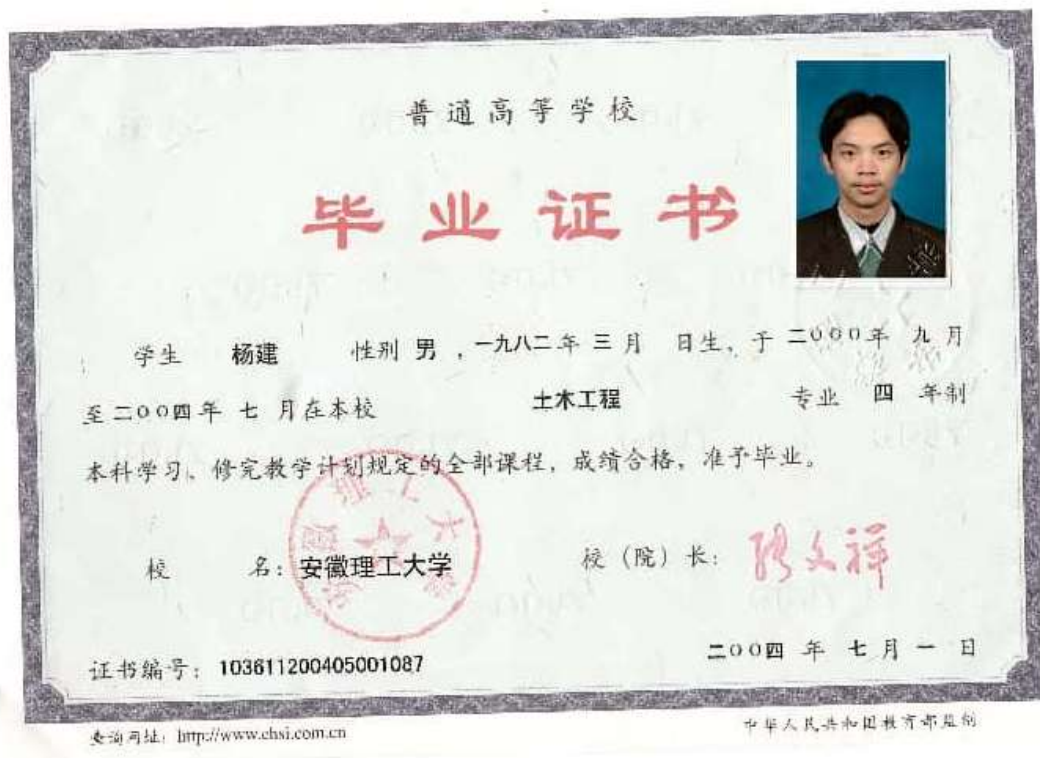 普通高等学校
毕业证书
学生 杨建 性别 男 ,一九八二年 三 月 日生、于 二000年 九 月
至 二00四年 七 月在本校 土木工程 专业 四 年制
本科学习、修完教学计划规定的全部课程,成绩合格,准予毕业。
安徽理工大学
校 名:安徽理工大学 校(院)长:
证书编号:103611200405001087 二00四 年 七 月 一 日
查询网址:http://www.chsi.com.cn 中华人民共和国教育部监制